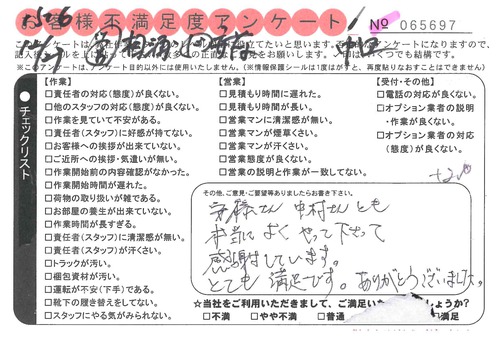 お客様不満足度アンケート
No 065697
このアンケートは
に役立てたいと思います。
※このアンケートは、アンケート目的以外には使用いたしません。(※情報保護シールは1度がすと、再度貼りなおすことはできません)
チェックリスト
【作業】
□責任者の対応(態度)が良くない。
□他のスタッフの対応(態度)が良くない。
□作業を見ていて不安がある。
□責任者(スタッフ)に好感が持てない。
□お客様への挨拶が出来ていない。
□ご近所への挨拶・気遣いが無い。
□作業開始前の内容確認がなかった。
□作業開始時間が遅れた。
□荷物の取り扱いが雑である。
□お部屋の養生が出来ていない。
□作業時間が長すぎる。
□責任者(スタッフ)に清潔感が無い。
□責任者(スタッフ)が汗くさい。
□トラックが汚い。
□梱包資材が汚い。
□運転が不安(下手)である。
□靴下の履き替えをしてない。
□スタッフにやる気がみられない。
【営業】
□見積もり時間に遅れた。
□見積もり時間が長い。
□営業マンに清潔感が無い。
□営業マンが煙草くさい。
□営業マンが汗くさい。
□営業態度が良くない。
□営業の説明と作業が一致してない。
【受付・その他】
□電話の対応が良くない。
□オプション業者の説明
・作業が良くない。
□オプション業者の対応
(態度)が良くない。
その他、ご意見・ご要望等ありましたらお書き下さい。
中村さんとも
本当によくやって下さって
感謝しています。
とても満足です。ありがとうございました。
☆当社をご利用いただきまして、ご満足いた しょうか?
□不満 □やや不満 □普通 □満足